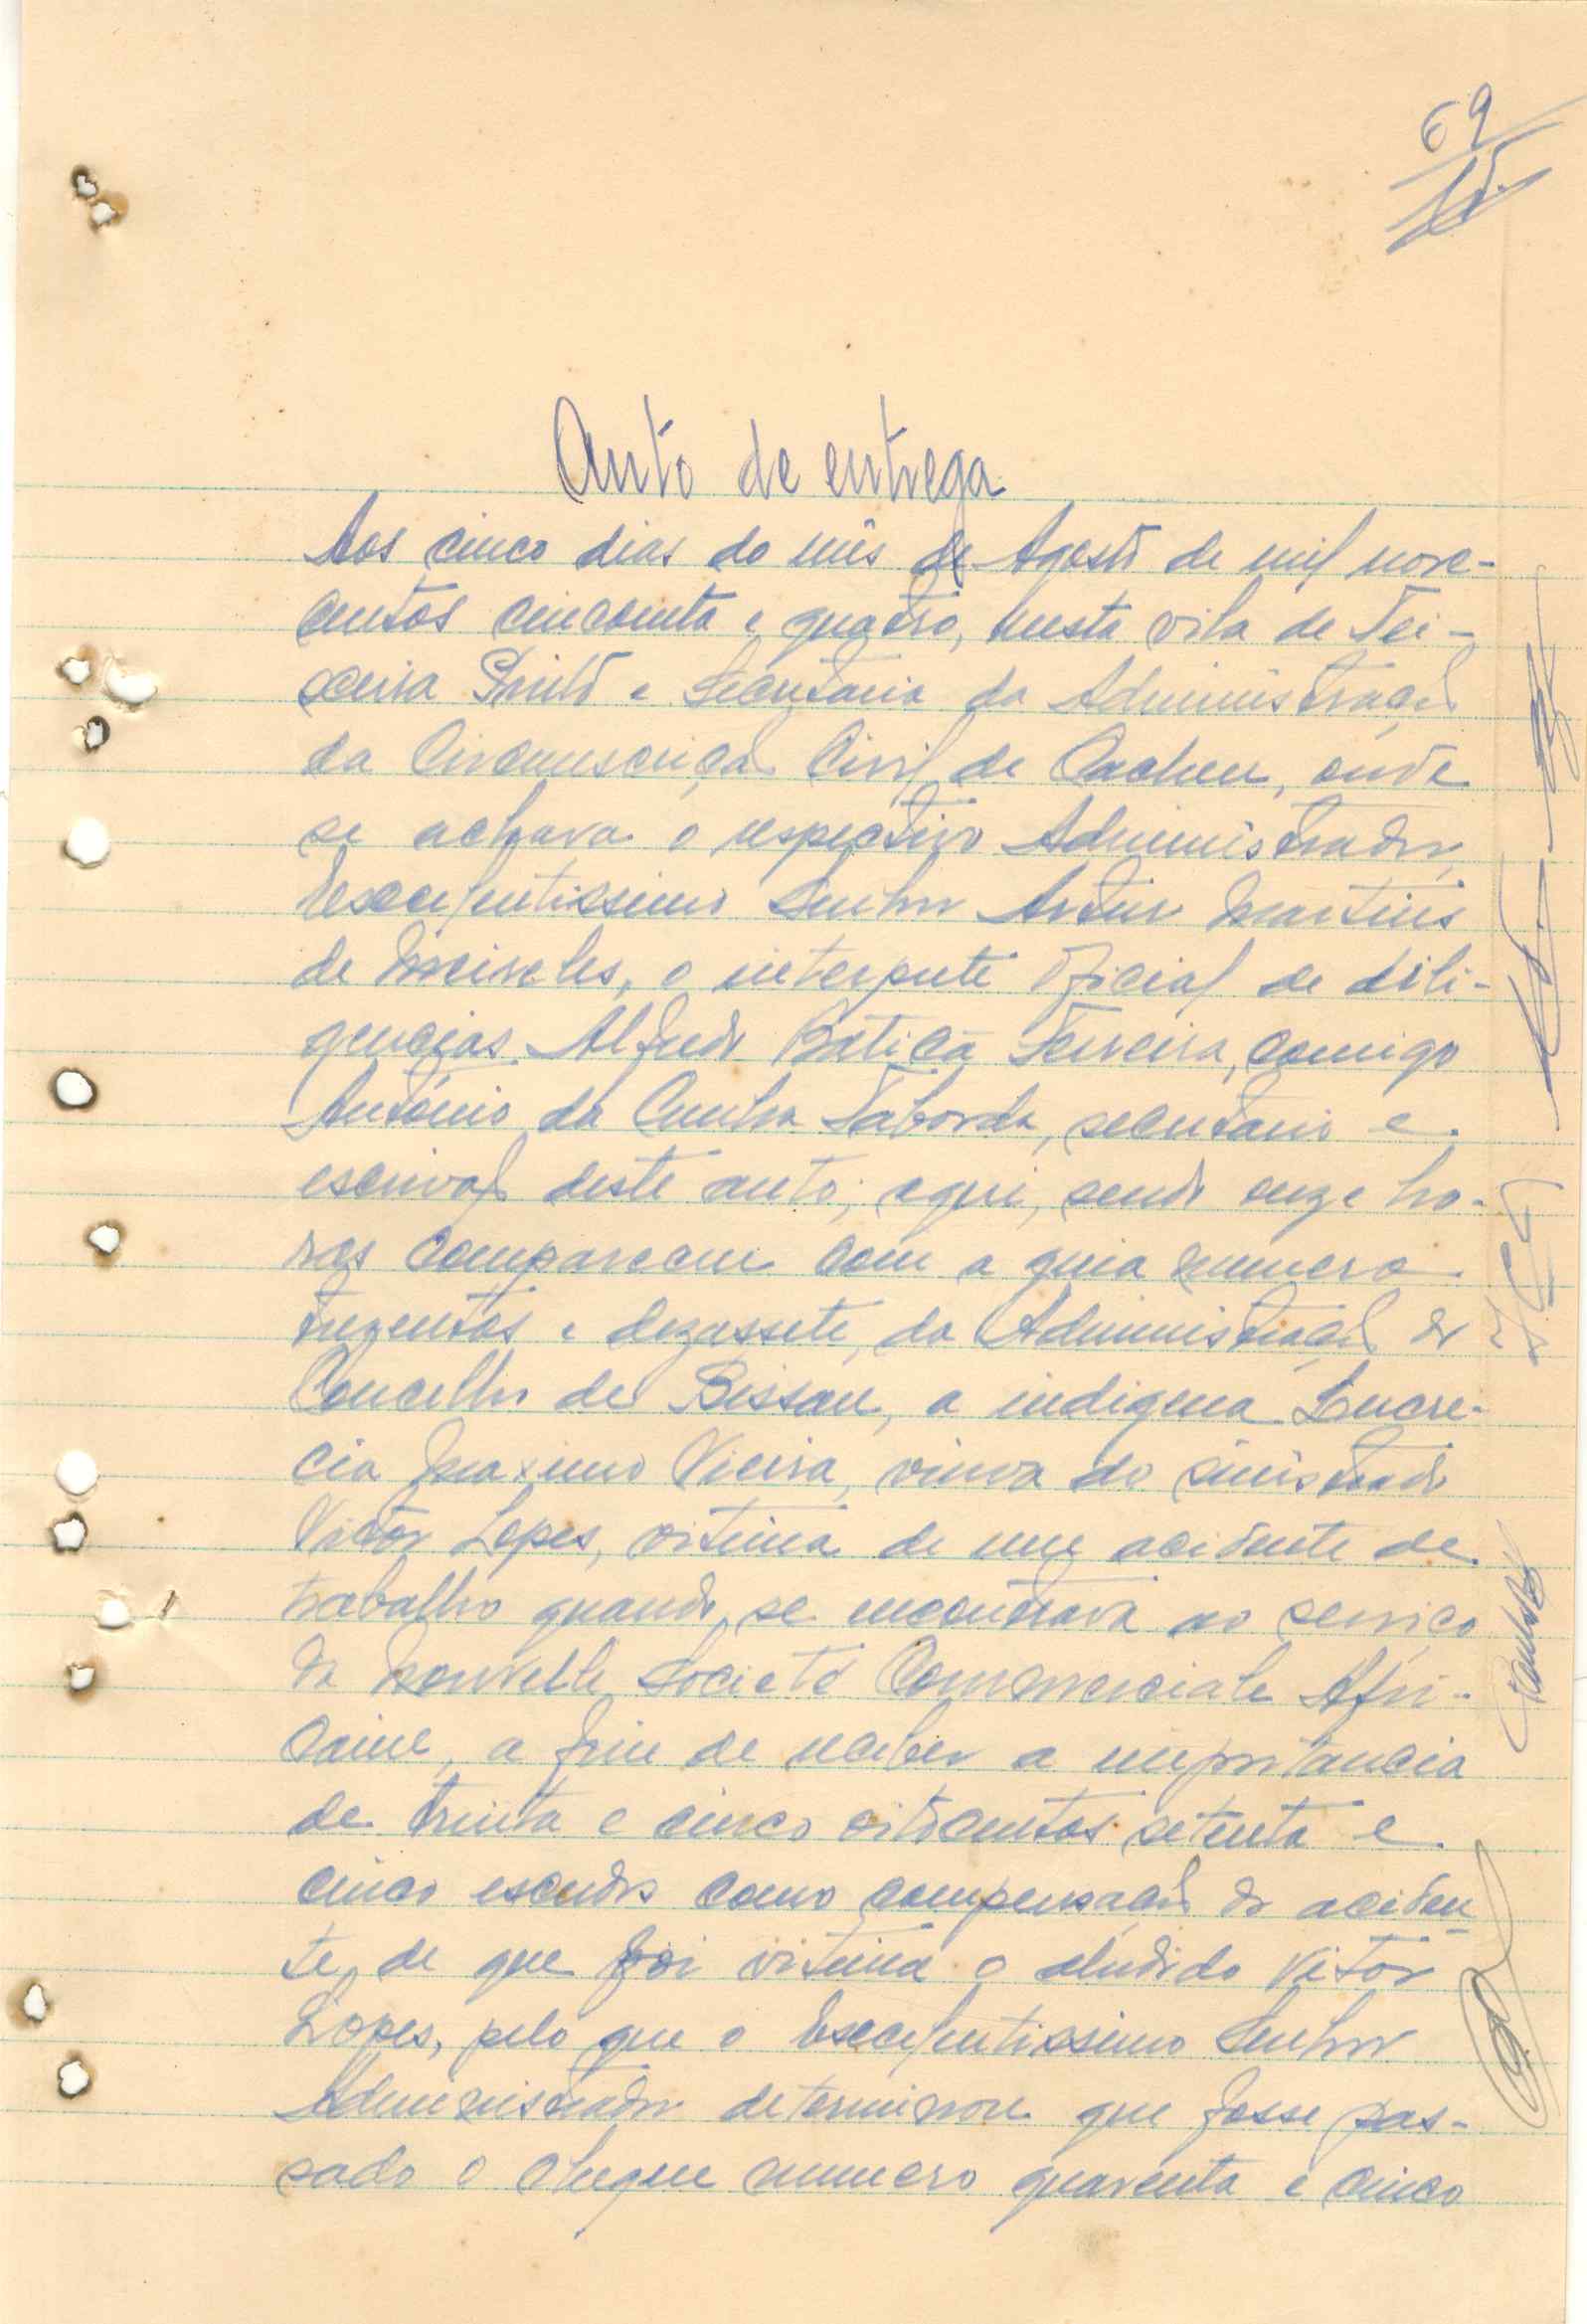 69
Auto de entrega
Aos cinco dias do mês de Agosto de mil nove-
centos cincoenta e quatro, nesta vila de Tei-
xeira Pinto e Secretaria da Administração
da Circunscrição Civil de Cacheu, onde
se achava o respectivo Administrador,
Excelentissimo Senhor Artur Martins
de Meireles, o interprete oficial de dili-
gencias Alfredo Batica Ferreira, comigo
António da Cunha Taborda, secretario e
escrivão deste auto; aqui, sendo onze ho-
ras compareceu com a guia numero
trezentos e dezassete, da Administração do
Concelho de Bissau, a indigena Lucre-
cia Maximo Vieira, viuva do sinistrado
Victor Lopes, vitima de um acidente de
trabalho quando se encontrava ao serviço
da Nouvelle Societé Commerciale Afri-
caine, a fim de receber a importancia
de trinta e cinco oitocentos setenta e
cinco escudos como compensação do aciden
te, de que foi vitima o aludido Vitor
Lopes, pelo que o Excelentissimo Senhor
Administrador determinou que fosse pas-
sado o cheque numero quarenta e cinco